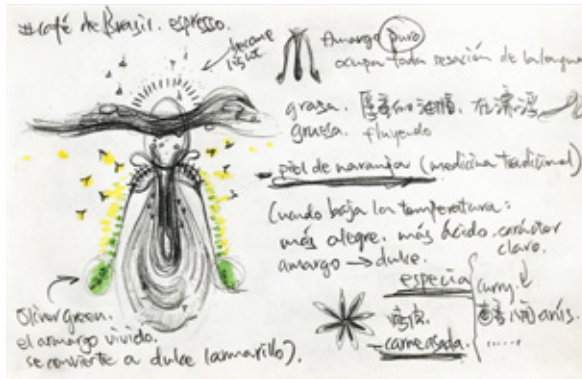 #café de Brasil. espresso.
become light
Amargo puro
ocupa toda sesación de la lengua
grasa. 厚重的油脂. 在漂浮
gruesa. fluyendo
piel de naranja (medicina tradicional)
Cuando baja la temperatura:
más alegre, más ácido. carácter claro.
amargo → dulce.
especia
curry
anís.
......
carne asada
Oliver Green.
el amargo vivido.
se convierte a dulce (amarillo).